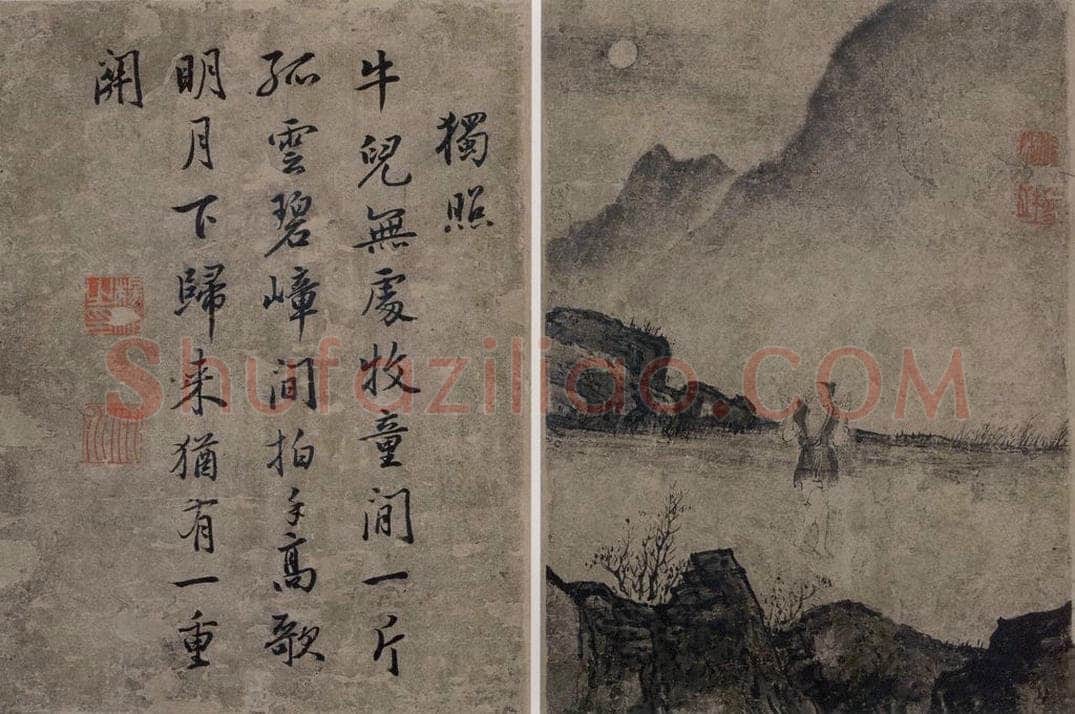 獨照
牛兒無處牧童閒一片
孤雲碧嶂間拍手高歌
明月下歸来猶有一重
関
Shufaziliao.COM